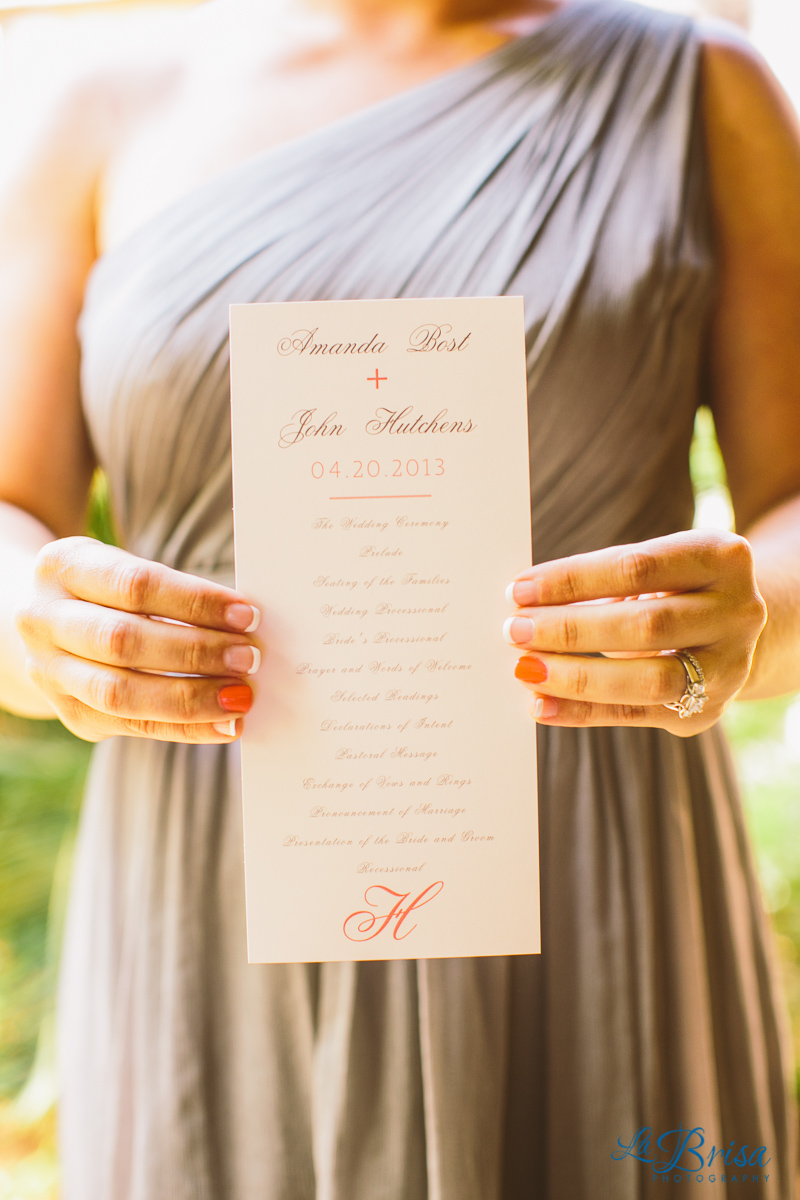 Amanda Bost
+
John Hutchens
04.20.2013
The Wedding Ceremony
Prelude
Seating of the Families
Wedding Processional
Bride's Processional
Prayer and Words of Welcome
Selected Readings
Declarations of Intent
Pastoral Message
Exchange of Vows and Rings
Pronouncement of Marriage
Presentation of the Bride and Groom
Recessional
H
La Brisa
PHOTOGRAPHY